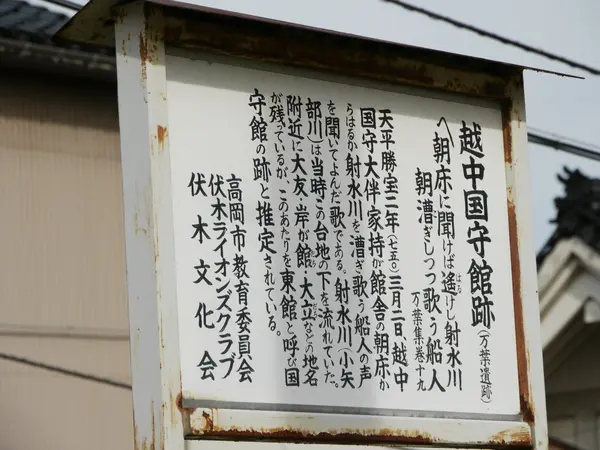 越中国守館跡（万葉遺跡）
〽朝床に聞けば遙けし射水川
朝漕ぎしつつ歌う船人
万葉集巻十九
天平勝宝二年（七五〇）三月二日越中
国守大伴家持が館舎の朝床か
らはるか射水川を漕ぎ歌う船人の声
を聞いてよんだ歌である。射水川（小矢
部川）は当時この台地の下を流れていた。
附近に大友・岸が館・大立などの地名
が残っているが、このあたりを東館と呼び国
守館の跡と推定されている。
高岡市教育委員会
伏木ライオンズクラブ
伏木文化会